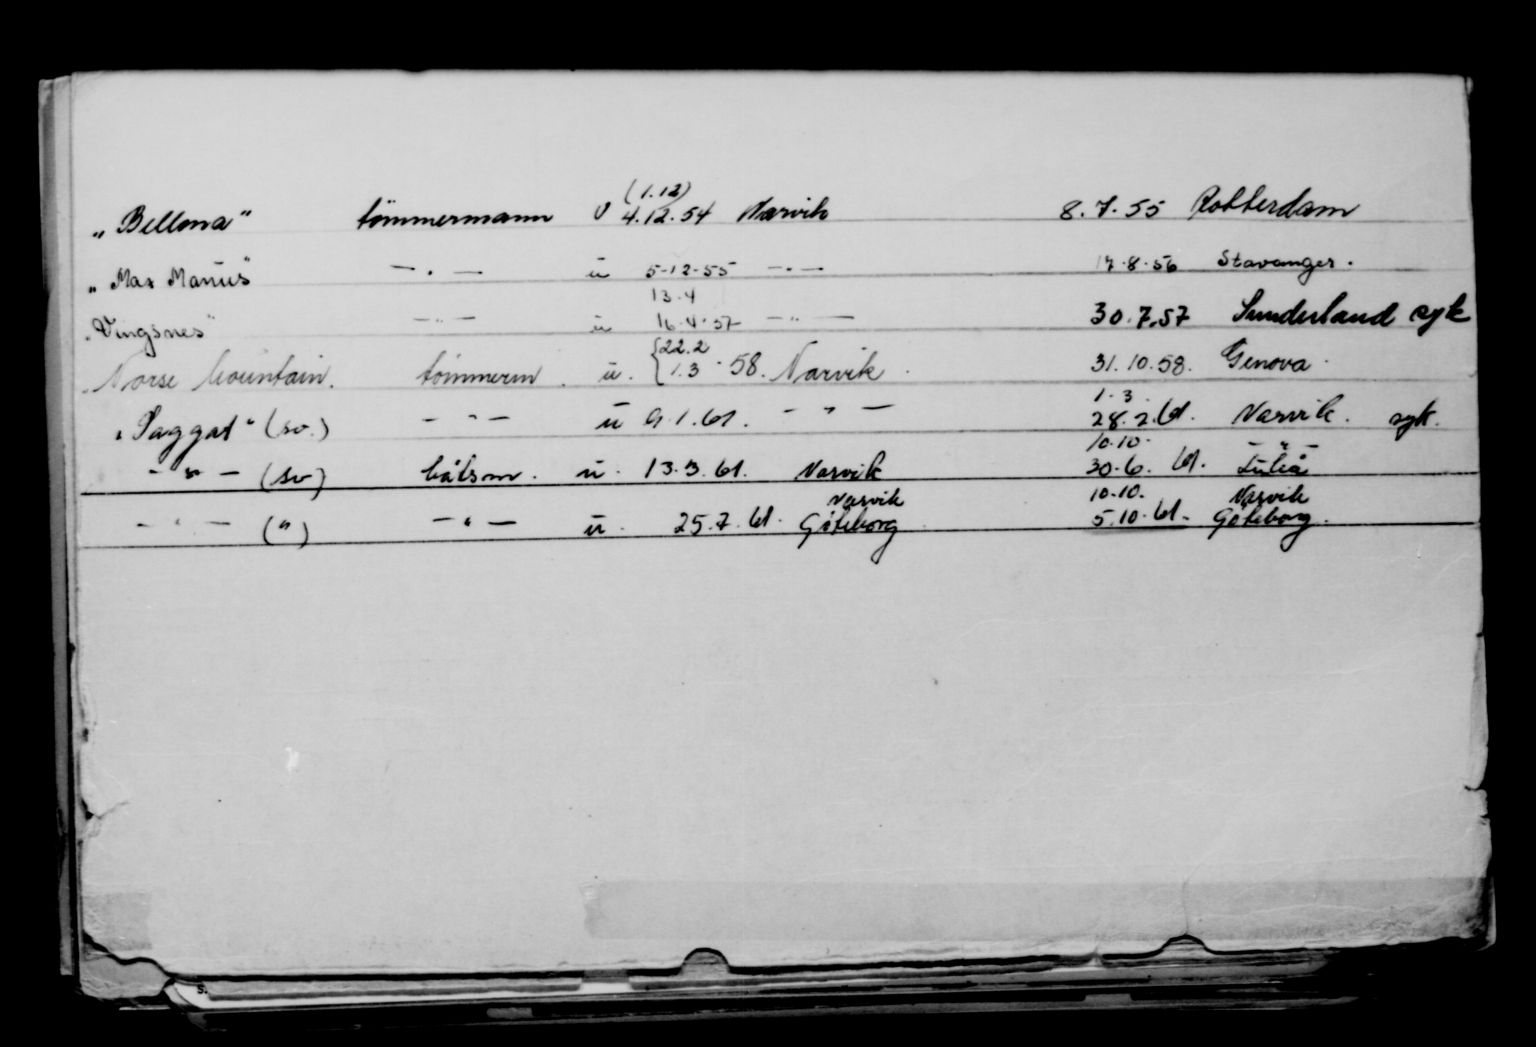 (1.12)
„Bellona" tömmermann u 4.12.54 Narvik 8.7.55 Rotterdam
„Max Manus" — . — u 5-12-55 — . — 17.8.56 Stavanger.
13.4
„Vingsnes" — " — u 16.4.57 — " — 30.7.57 Sunderland syk
22.2
Norse Mountain. tömmerm. u. 1.3.58. Narvik. 31.10.58. Genova.
1.3.
„Saggat" (sv.) — " — u 9.1.61. — " — 28.2.61. Narvik. syk.
10.10. — " —
— " — (sv) båtsm. u. 13.3.61. Narvik 30.6.61. Luleå
Narvik 10.10. Narvik
— " — (") — " — u. 25.7.61. Göteborg 5.10.61. Göteborg.